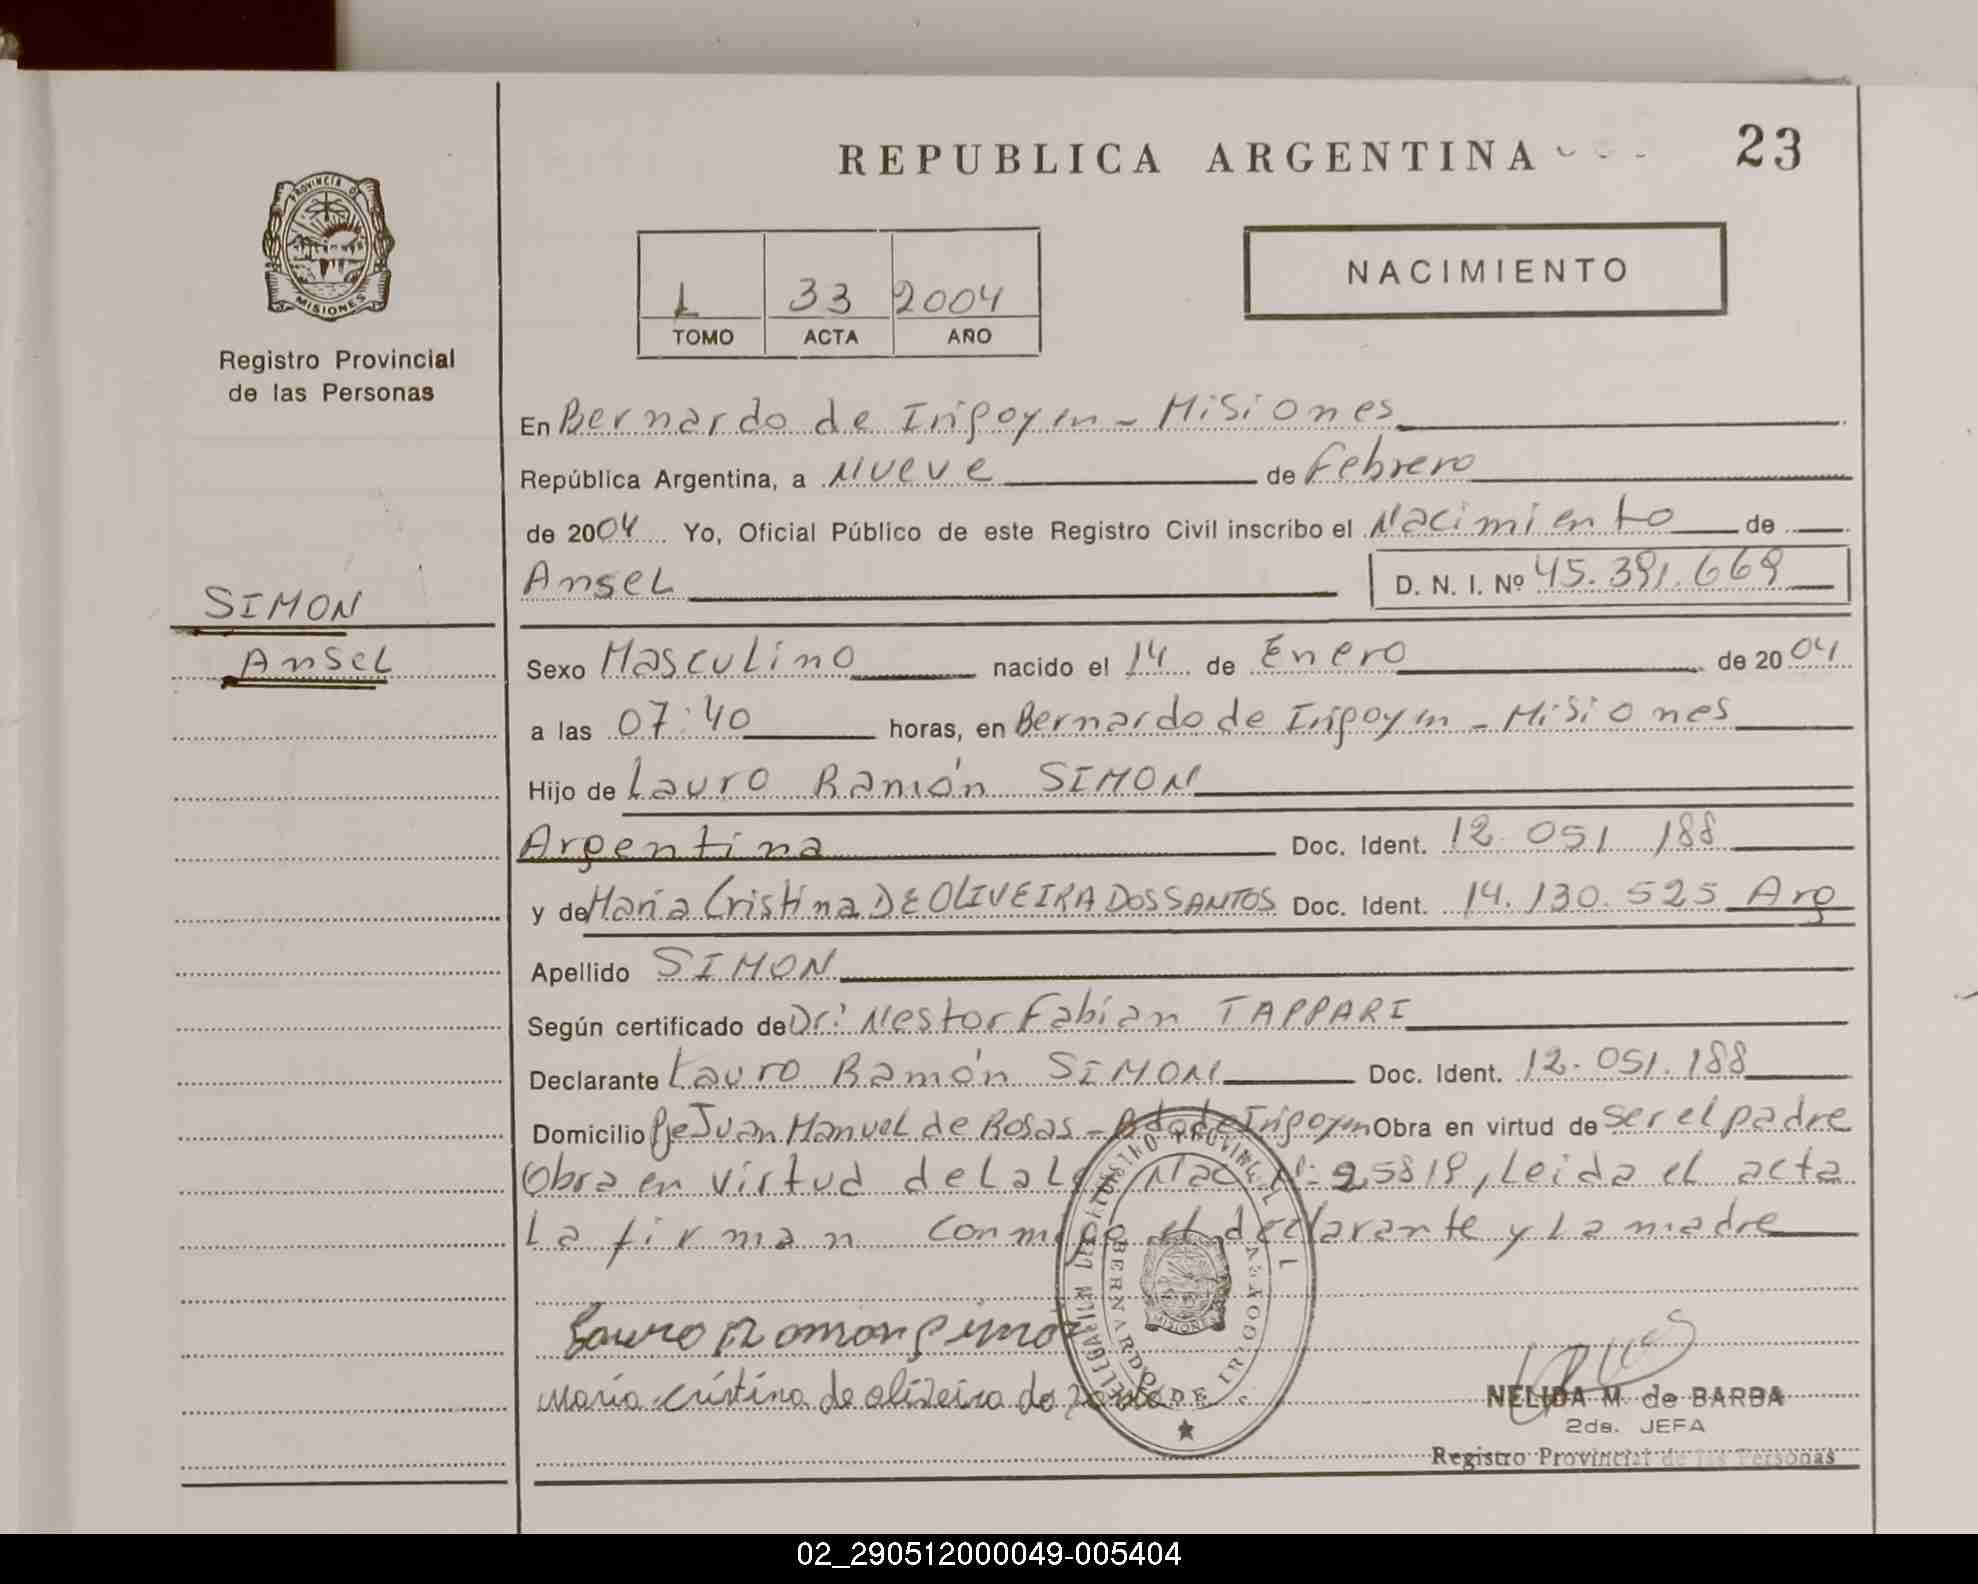 REPUBLICA ARGENTINA
23
PROVINCIA DE
MISIONES
Registro Provincial
de las Personas
1 33 2004
TOMO ACTA AÑO
NACIMIENTO
En Bernardo de Irigoyen - Misiones
República Argentina, a Nueve de Febrero
de 2004 Yo, Oficial Público de este Registro Civil inscribo el Nacimiento de
Ansel D. N. I. Nº 45.391.669
SIMON
Ansel
Sexo Masculino nacido el 14 de Enero de 2004
a las 07:40 horas, en Bernardo de Irigoyen - Misiones
Hijo de Lauro Ramón SIMON
Argentina Doc. Ident. 12.051.188
y de Maria Cristina DE OLIVEIRA DOS SANTOS Doc. Ident. 14.130.525 Arg
Apellido SIMON
Según certificado de Dr: Nestor Fabian TAPPARI
Declarante Lauro Ramón SIMON Doc. Ident. 12.051.188
Domicilio Pje Juan Manuel de Rosas - Bdo de Irigoyen Obra en virtud de ser el padre
Obra en virtud de la Ley Nac Nº: 25819, Leida el acta
La firman conmigo el declarante y La madre
DELEGACION DEL REGISTRO PROVINCIAL
BERNARDO DE IRIGOYEN
MISIONES
Lauro Ramon Simon
Maria cristina de oliveira do
NELIDA M. de BARBA
2da. JEFA
Registro Provincial de las Personas
02_290512000049-005404